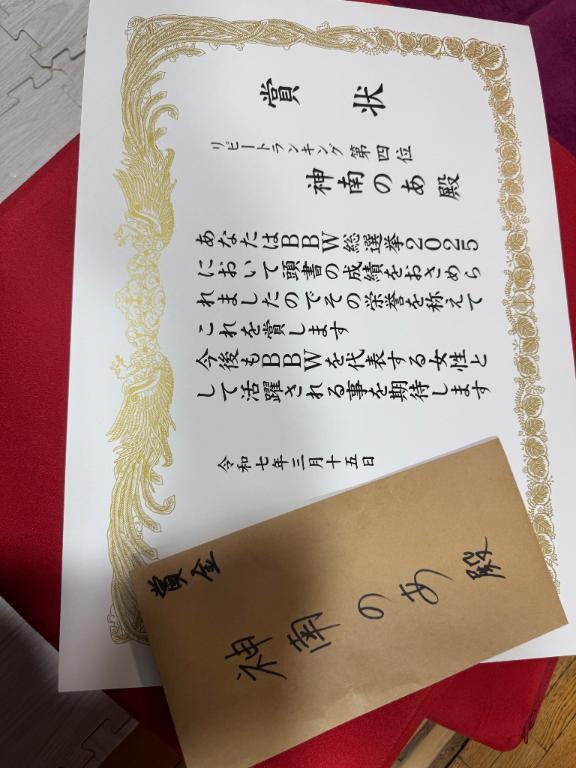 賞状
リピートランキング第四位
神南のあ殿
あなたはBBW総選挙2025
において頭書の成績をおさめら
れましたのでその栄誉を称えて
これを賞します
今後もBBWを代表する女性と
して活躍される事を期待します
令和七年三月十五日
賞金
神南のあ殿